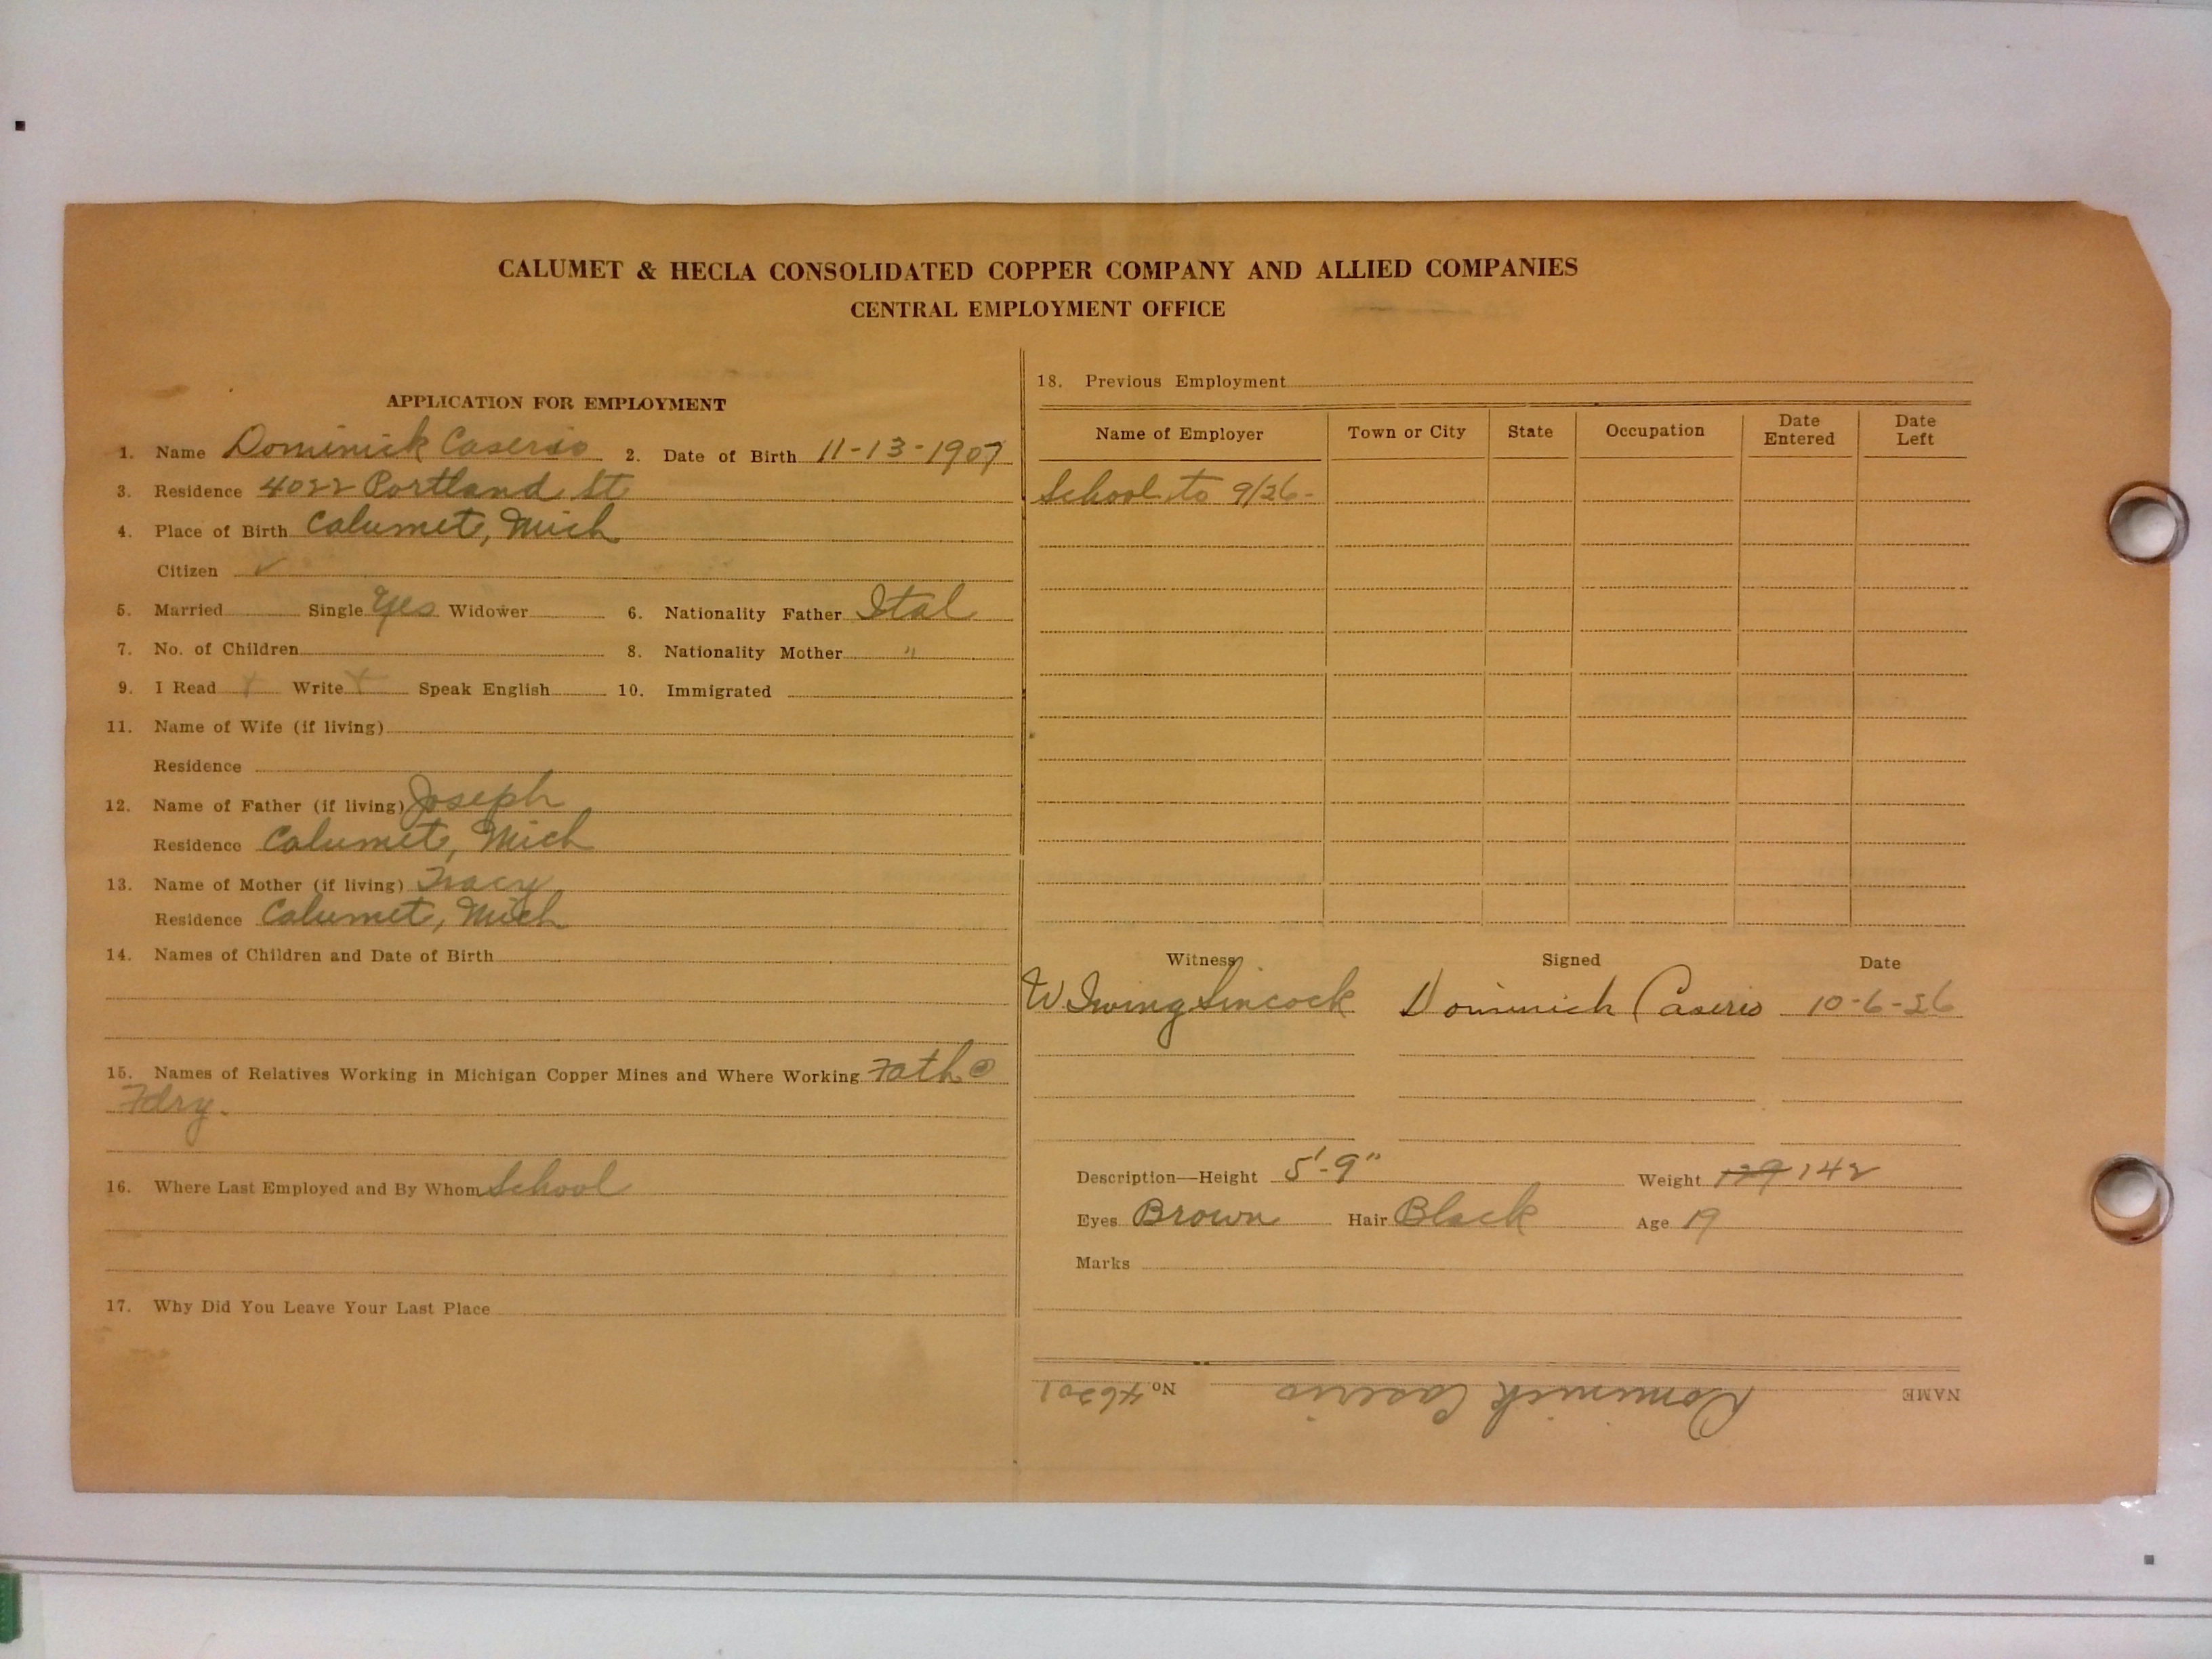 CALUMET & HECLA CONSOLIDATED COPPER COMPANY AND ALLIED COMPANIES
CENTRAL EMPLOYMENT OFFICE
APPLICATION FOR EMPLOYMENT
1. Name Dominick Caserio 2. Date of Birth 11-13-1907
3. Residence 4022 Portland St
4. Place of Birth Calumet, Mich
Citizen ✓
5. Married Single Yes Widower 6. Nationality Father Ital
7. No. of Children 8. Nationality Mother "
9. I Read x Write x Speak English 10. Immigrated
11. Name of Wife (if living)
Residence
12. Name of Father (if living) Joseph
Residence Calumet, Mich
13. Name of Mother (if living) Tracy
Residence Calumet, Mich
14. Names of Children and Date of Birth
15. Names of Relatives Working in Michigan Copper Mines and Where Working Fath @
Fdry.
16. Where Last Employed and By Whom School
17. Why Did You Leave Your Last Place
18. Previous Employment
Name of Employer Town or City State Occupation Date Entered Date Left
School to 9/26-
Witness Signed Date
W Irving Sincock Dominick Caserio 10-6-26
Description—Height 5'-9" Weight 129 142
Eyes Brown Hair Black Age 19
Marks
NAME Dominick Caserio No. 46201